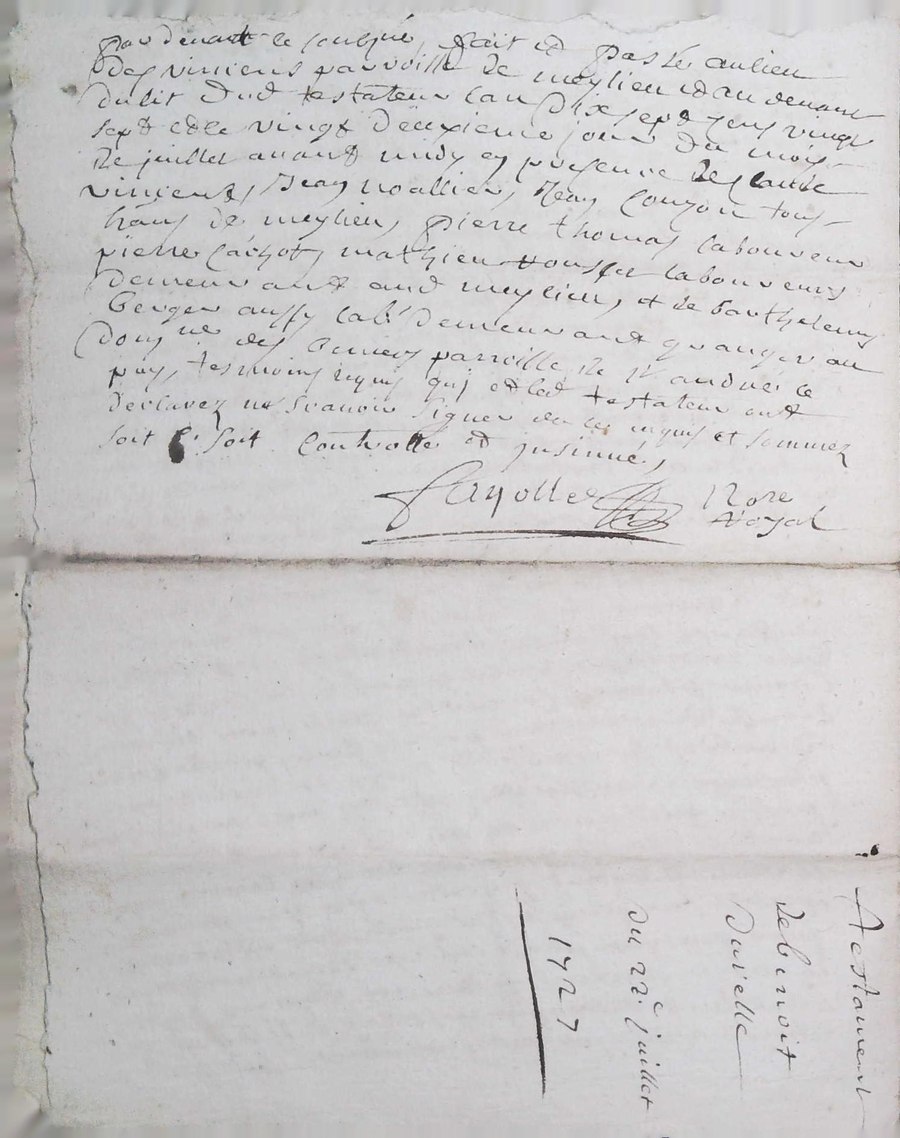 par devant le soubzné, fait et passé au lieu
des viniens parroisse de meylieu et au devant
du lit dud testateur l'an dix sept cens vingt
sept et le vingt deuxieme jour du mois
de juillet avant midy en presence de claude
viniens, Jean noallier, Jean couzon tous
hans de meylieu, pierre thomas laboureur
pierre mathieu laboureurs
demeurant aud meylieu, et de barthelemy
berger aussy lab.r demeurant granger au
dom.ne des parroisse de St andré le
puy, tesmoins requis qui et led testateur ont
declarez ne scavoir signer de ce requis et sommez
soit soit controllé et insinué,
fayolle Nore
Royal
Testament
de benoit
Durelle
du 22.e juillet
1727